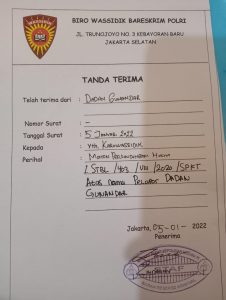 BIRO WASSIDIK BARESKRIM POLRI
JL. TRUNOJOYO NO. 3 KEBAYORAN BARU
JAKARTA SELATAN
TANDA TERIMA
Telah terima dari : DADAN GUNANDAR
Nomor Surat : -
Tanggal Surat : 5 JANUARI 2022
Kepada : YTH. KAROWASSIDIK
Perihal : MOHON PERLINDUNGAN HUKUM
STBL / 403 / VIII / 2020 / SPKT
ATAS NAMA PELAPOR DADAN
GUNANDAR
Jakarta, 05 - 01 - 2022
Penerima